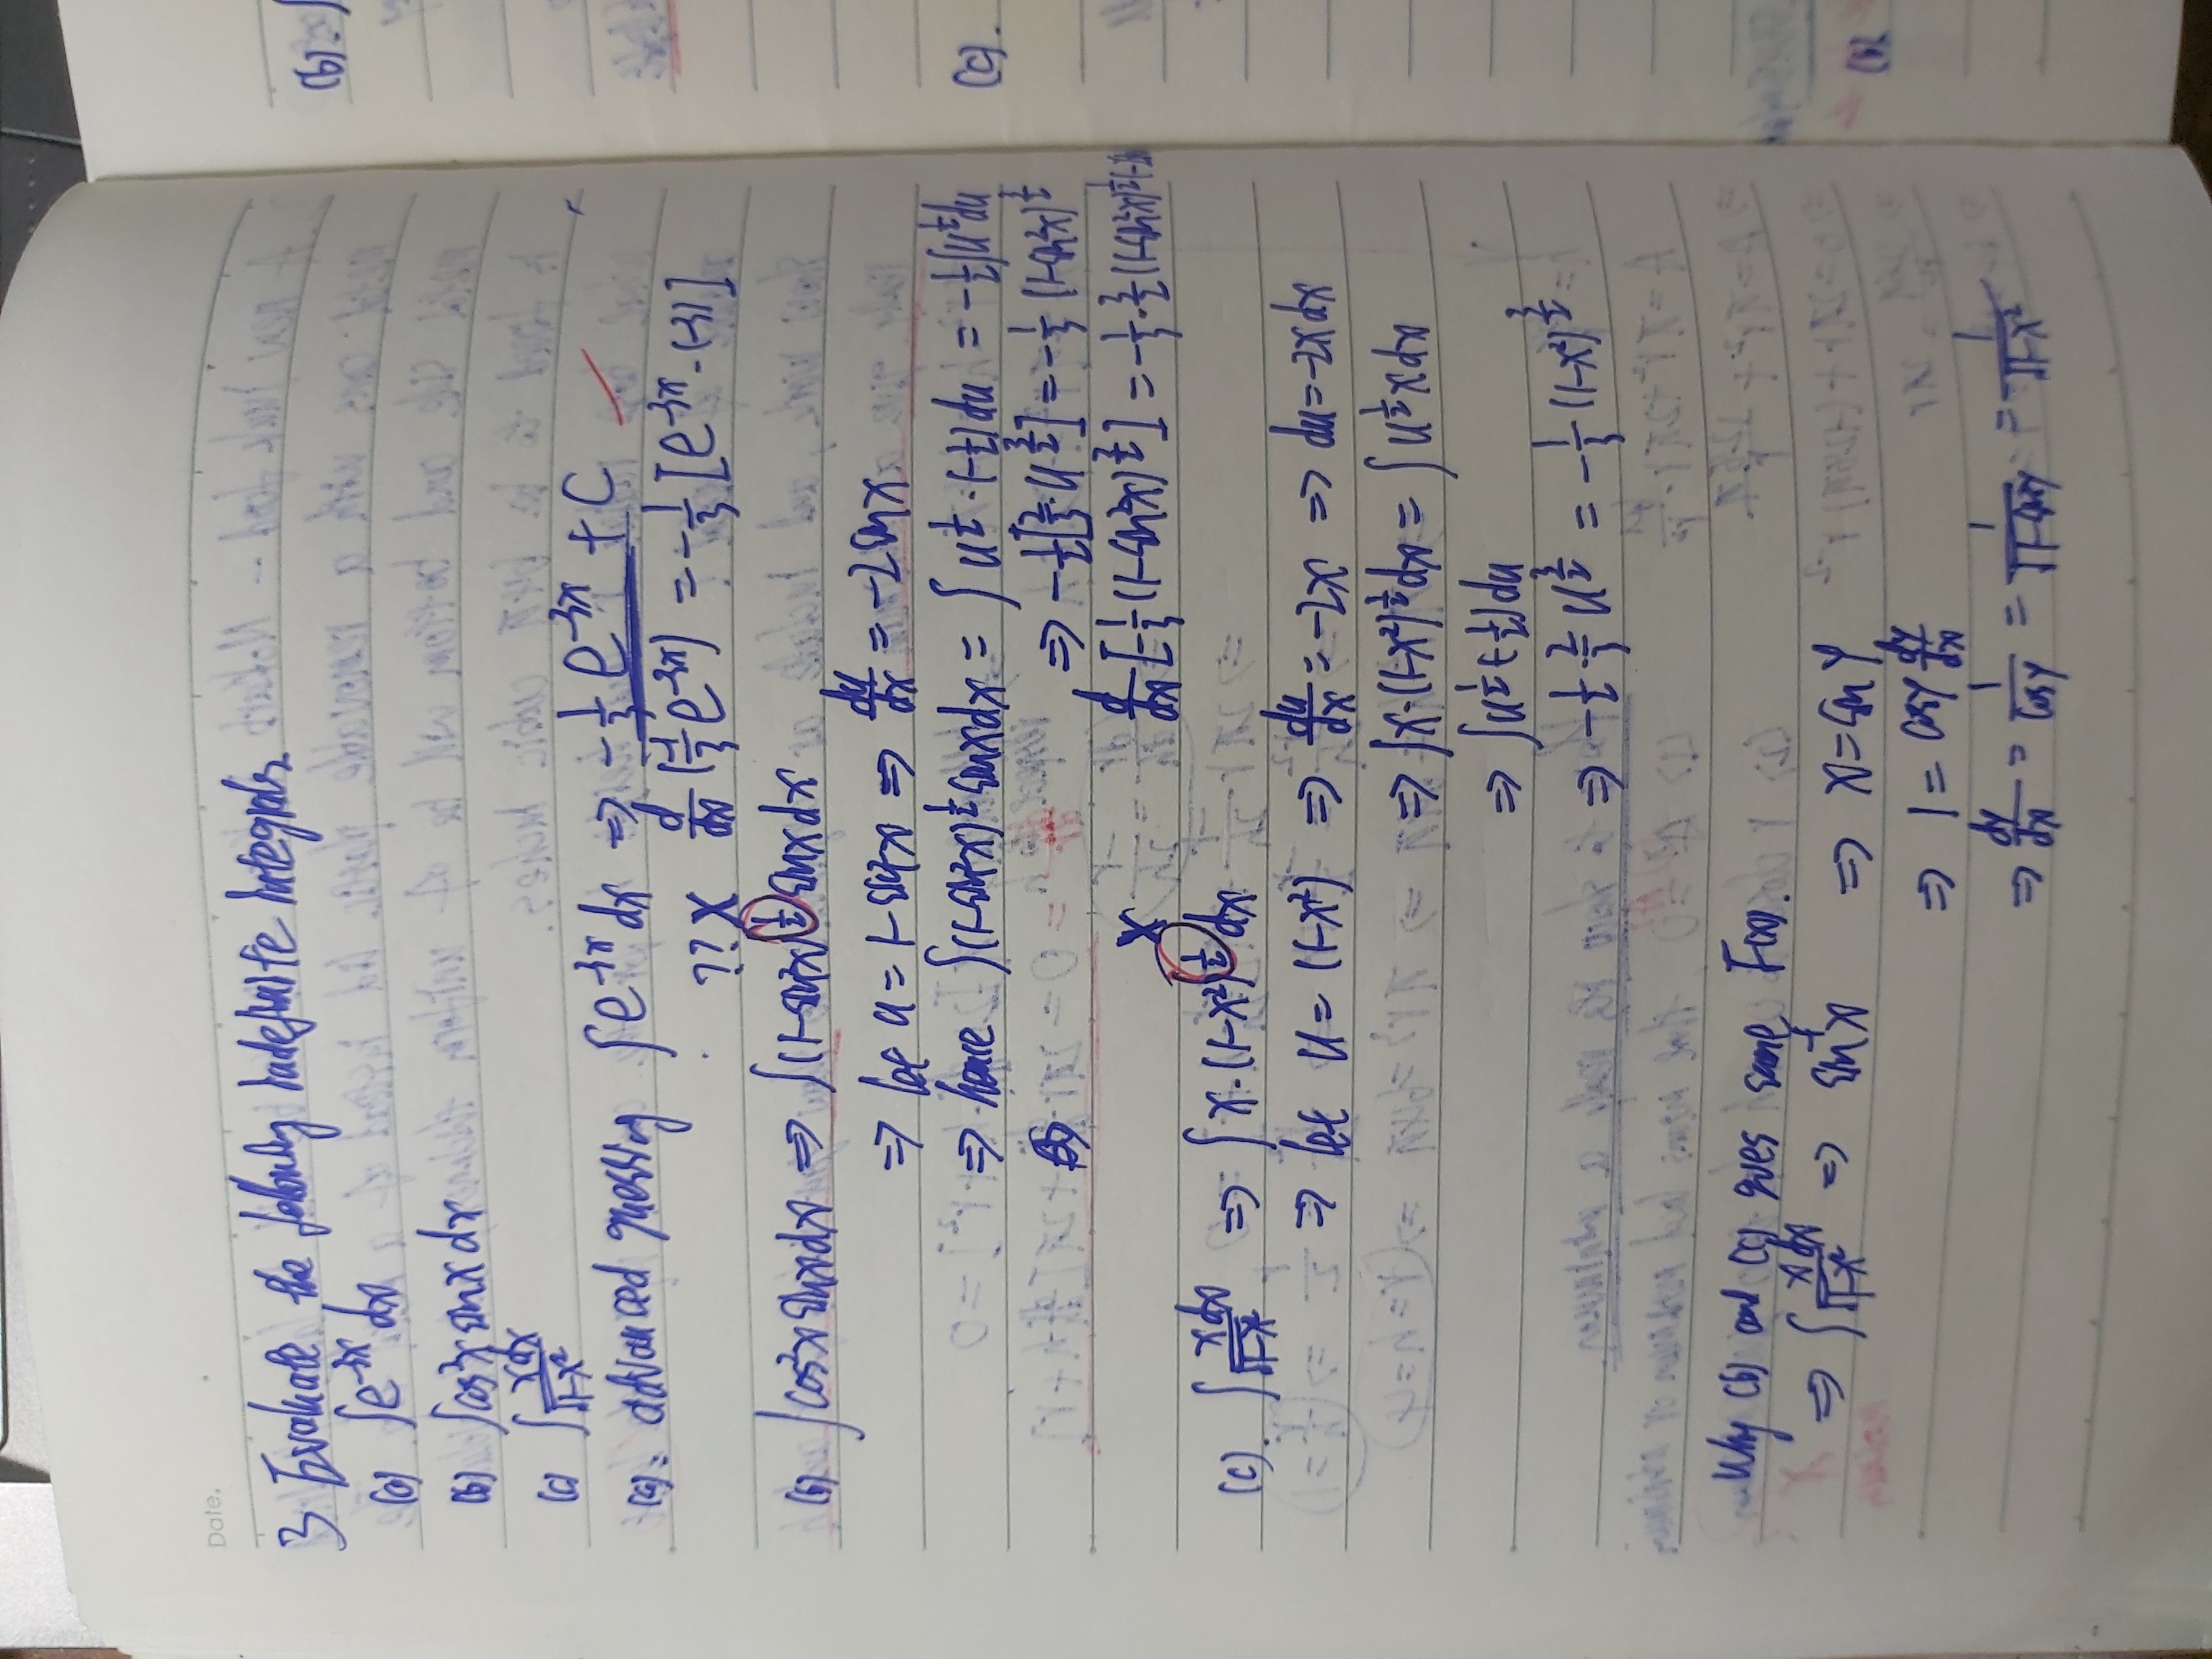 Date.
3 Evaluate the following indefinite integrals.
(a) ∫e^{-3x} dx
(b) ∫cos²x sinx dx
(c) ∫ xdx/√(1-x²)
(a). advanced guessing ∫e^{-3x} dx ⇒ -1/3 e^{-3x} + C
?? X d/dx (-1/3 e^{-3x}) = -1/3 [e^{-3x} · (-3)]
(b) ∫cos²x sinx dx ⇒ ∫(1-sin²x)^{1/2} sinx dx
⇒ let u = 1-sin²x ⇒ du/dx = -2 sinx
⇒ hence ∫(1-sin²x)^{1/2} sinx dx = ∫ u^{1/2} · (-1/2) du = -1/2 ∫u^{1/2} du
⇒ -1/2 [2/3 · u^{3/2}] = -1/3 (1-sin²x)^{3/2}
X d/dx [-1/3 (1-sin²x)^{3/2}] = -1/3 · 3/2 (1-sin²x)^{1/2}
(c). ∫ xdx/√(1-x²) ⇒ ∫ x · (1-x²)^{1/2} dx
⇒ let u = (1-x²) ⇒ du/dx = -2x ⇒ du = -2x dx
⇒ ∫x · (1-x²)^{1/2} dx = ∫ u^{1/2} x dx
⇒ ∫u^{1/2} (-1/2) du
⇒ -1/2 · 2/3 u^{3/2} = -1/3 (1-x²)^{3/2}
Why (b) and (c) gives same F(x).
⇒ ∫ xdx/√(1-x²) ⇒ sin^{-1}x ⇒ x = sin y
⇒ 1 = cosy dy/dx
⇒ dy/dx = 1/cosy = 1/√(1-sin²y) = 1/√(1-x²)
(b). ∫
(c).
(b)